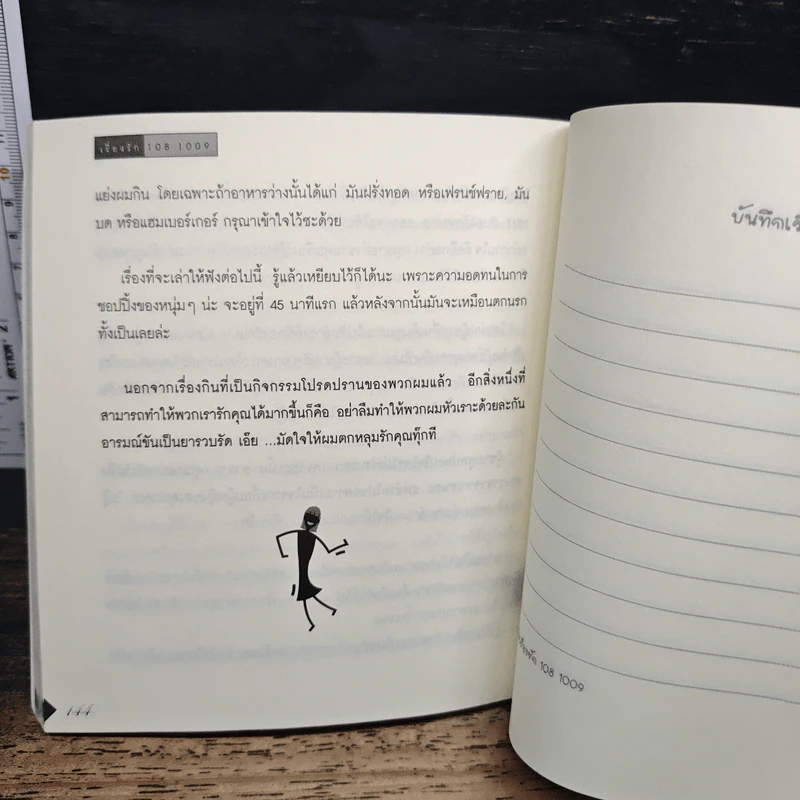 เรื่องรัก 108 1009
แย่งผมกิน โดยเฉพาะถ้าอาหารว่างนั้นได้แก่ มันฝรั่งทอด หรือเฟรนช์ฟราย, มัน
บด หรือแฮมเบอร์เกอร์ กรุณาเข้าใจไว้ซะด้วย
เรื่องที่จะเล่าให้ฟังต่อไปนี้ รู้แล้วเหยียบไว้ก็ได้นะ เพราะความอดทนในการ
ชอปปิ้งของหนุ่มๆ น่ะ จะอยู่ที่ 45 นาทีแรก แล้วหลังจากนั้นมันจะเหมือนตกนรก
ทั้งเป็นเลยล่ะ
นอกจากเรื่องกินที่เป็นกิจกรรมโปรดปรานของพวกผมแล้ว อีกสิ่งหนึ่งที่
สามารถทำให้พวกเรารักคุณได้มากขึ้นก็คือ อย่าลืมทำให้พวกผมหัวเราะด้วยละกัน
อารมณ์ขันเป็นยารวบรัด เอ๊ย ...มัดใจให้ผมตกหลุมรักคุณทุ๊กที
144
บันทึก
108 1009